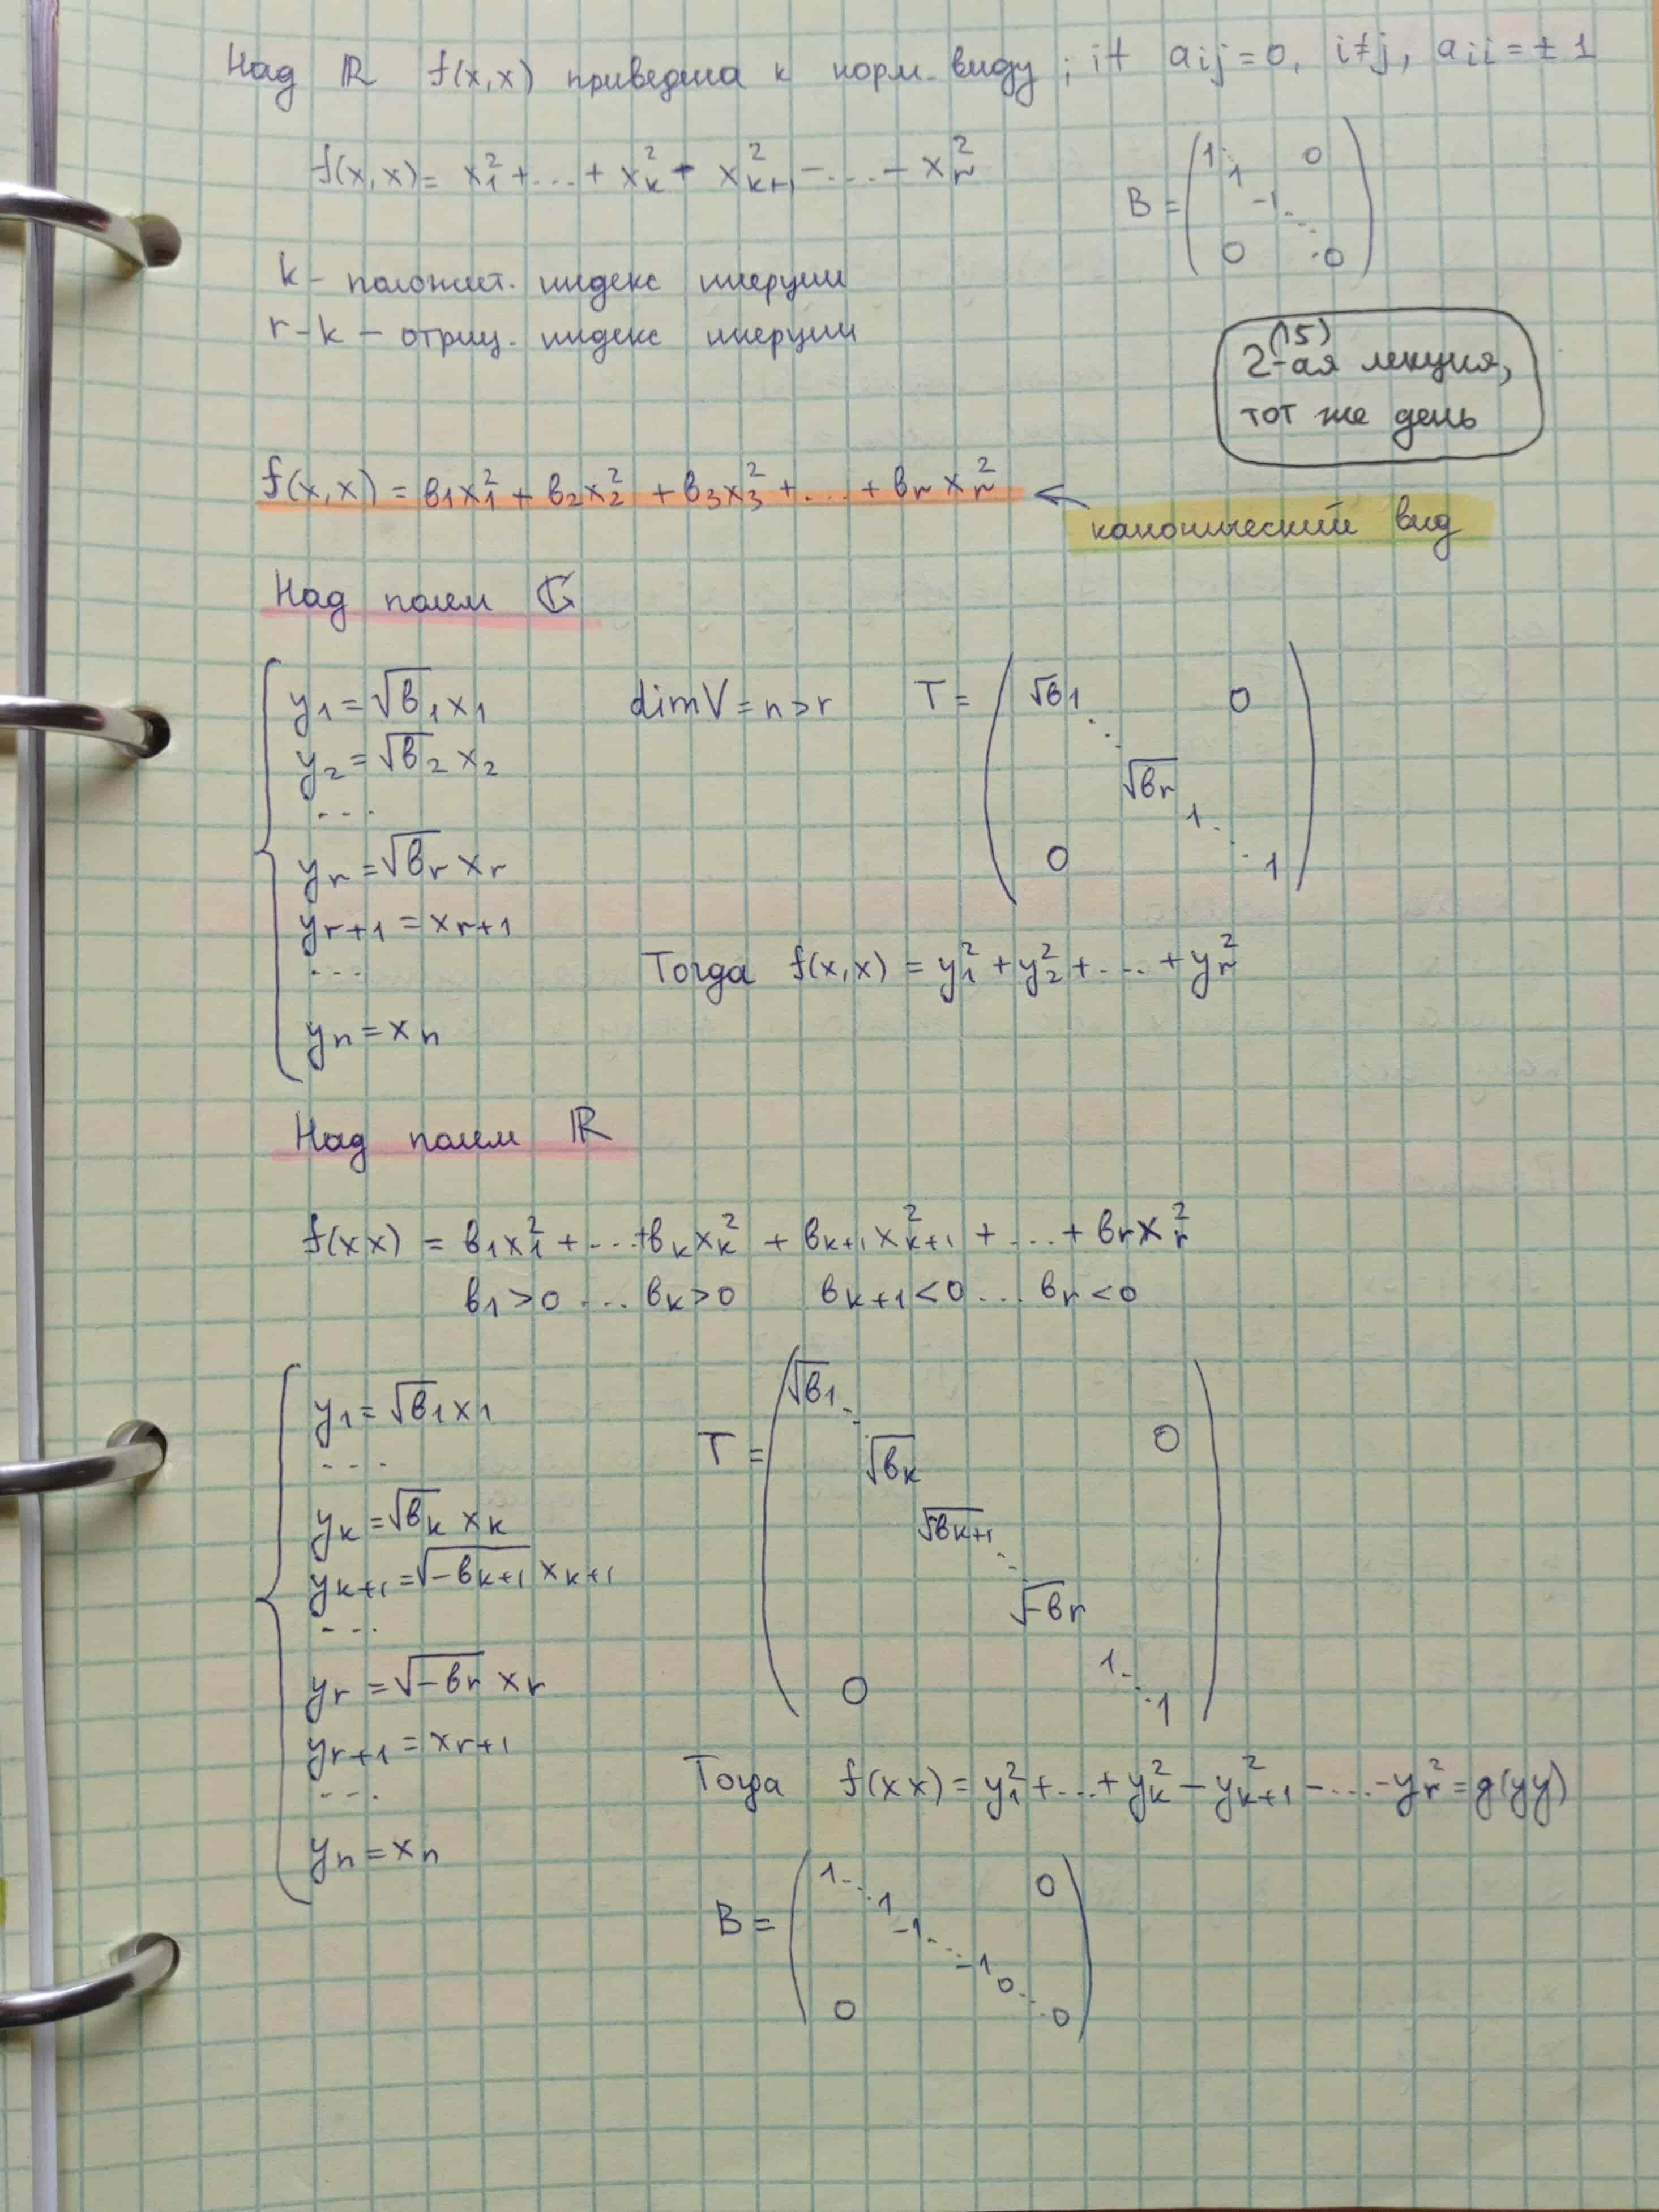 Над ℝ f(x,x) приведена к норм. виду ; if aij = 0, i≠j, aii = ± 1
f(x,x) = x₁² + ... + xₖ² - xₖ₊₁² - ... - xᵣ²
B = (1 ⋱ 1 -1 ⋱ 0; 0, 0)
k - положит. индекс инерции
r-k - отриц. индекс инерции
(15)
2-ая лекция,
тот же день
f(x,x) = b₁x₁² + b₂x₂² + b₃x₃² + ... + bᵣxᵣ² ← канонический вид
Над полем ℂ
y₁ = √b₁ x₁
y₂ = √b₂ x₂
...
yᵣ = √bᵣ xᵣ
yᵣ₊₁ = xᵣ₊₁
...
yₙ = xₙ
dimV = n > r
T = (√b₁ ⋱ √bᵣ 1 ⋱ 1; 0, 0)
Тогда f(x,x) = y₁² + y₂² + ... + yᵣ²
Над полем ℝ
f(xx) = b₁x₁² + ... + bₖxₖ² + bₖ₊₁xₖ₊₁² + ... + bᵣxᵣ²
b₁>0 ... bₖ>0 bₖ₊₁<0 ... bᵣ<0
y₁ = √b₁ x₁
...
yₖ = √bₖ xₖ
yₖ₊₁ = √-bₖ₊₁ xₖ₊₁
...
yᵣ = √-bᵣ xᵣ
yᵣ₊₁ = xᵣ₊₁
...
yₙ = xₙ
T = (√b₁ ⋱ √bₖ √-bₖ₊₁ ⋱ √-bᵣ 1 ⋱ 1; 0, 0)
Тогда f(xx) = y₁² + ... + yₖ² - yₖ₊₁² - ... - yᵣ² = g(yy)
B = (1 ⋱ 1 -1 ⋱ -1 0 ⋱ 0; 0, 0)